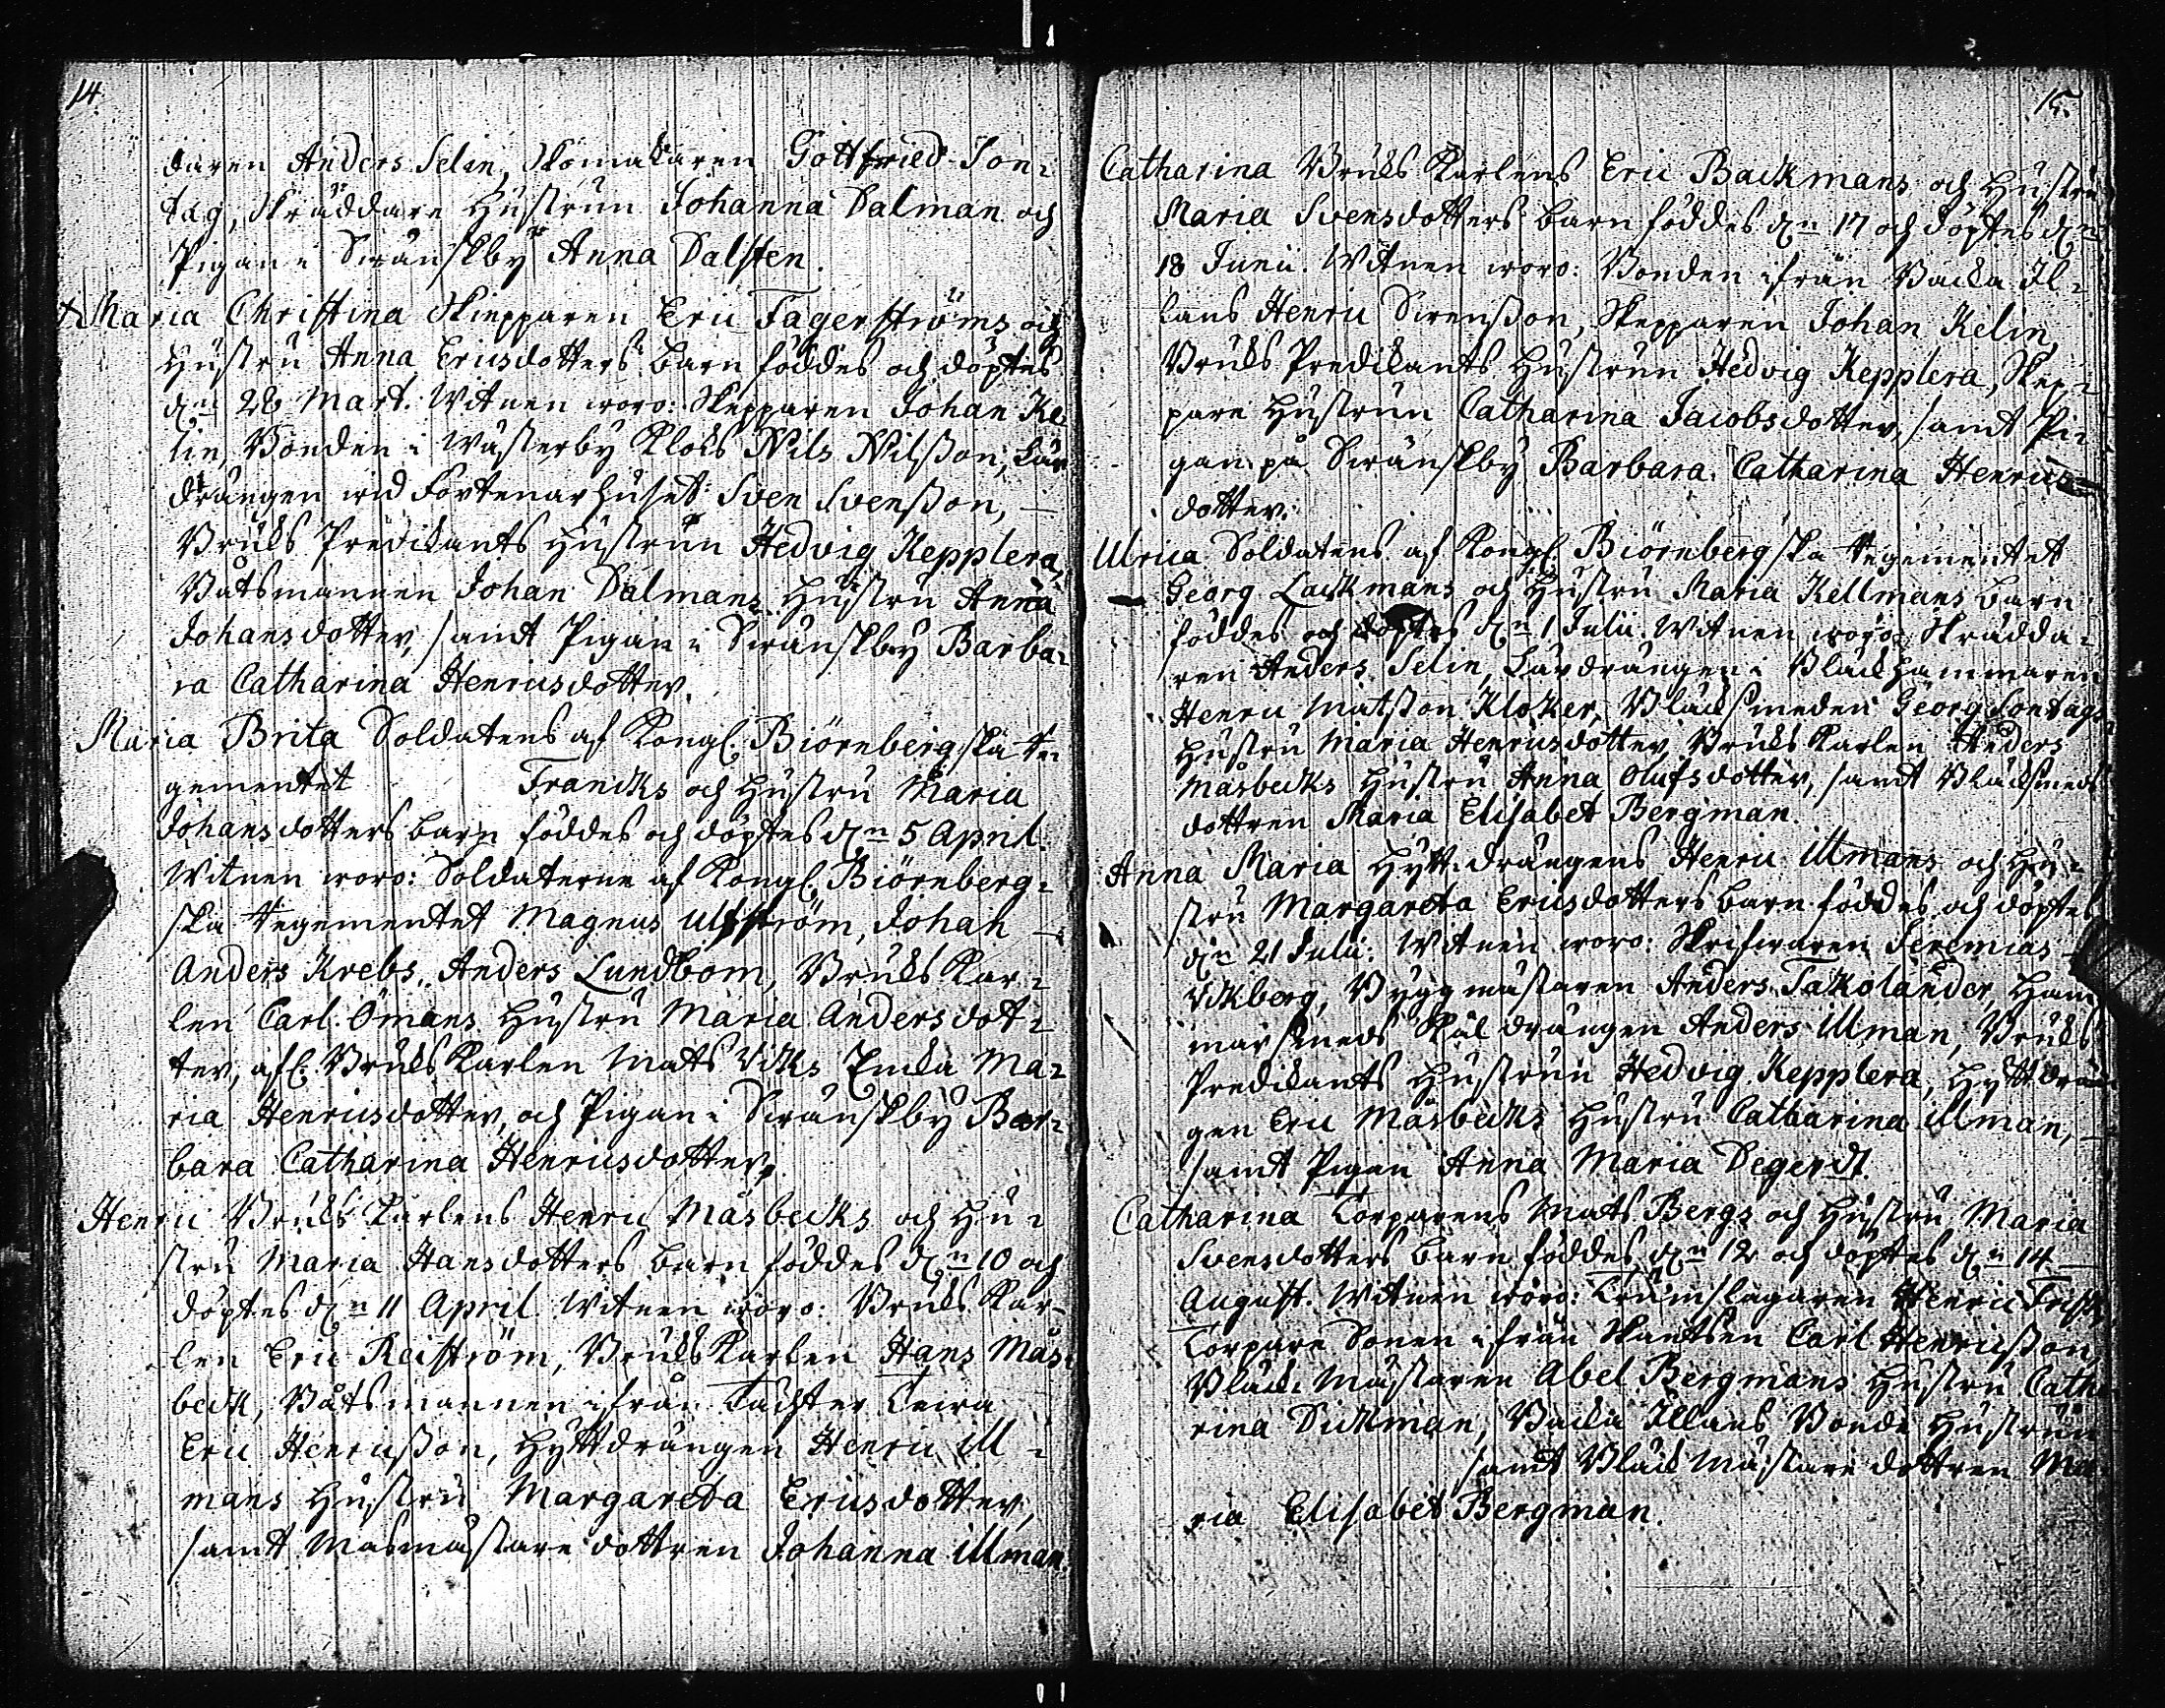 14.
daren Anders Selin, Skomakaren Gottfried Son-
tag, Skräddare Hustrun Johanna Dalman och
Pigan i Swänskby Anna Dalsten.
+ Maria Christina Skiepparen Eric Fagerströms och
Hustru Anna Ericsdotters barn föddes och döptes
d:n 28 Mart. Witnen woro: Skepparen Johan Ke-
lin, Bonden i Wästerby Klots Nils Nilsson, Lär
drängen wid Fortenarhuset Sven Svensson, —
Bruks Predikants Hustrun Hedvig Kepplera,
Båtsmannen Johan Dalmans Hustru Anna
Johansdotter, samt Pigan i Swänskby Barba-
ra Catharina Henricsdotter.
Maria Brita Soldatens af Kongl. Biörnbergska Re-
gementet Francks och Hustru Maria
Johansdotters barn föddes och döptes d:n 5 April.
Witnen woro: Soldaterne af Kongl. Biörnberg-
ska Regementet Magnus Ulfström, Johan —
Anders Krebs, Anders Lundbom, Bruks Kar-
len Carl Ömans Hustru Maria Andersdot-
ter, afl. Bruks Karlen Mats Viks Encka Ma-
ria Henricsdotter, och Pigan i Swänskby Bar-
bara Catharina Henricsdotter.
Henric Bruks Karlens Henric Måsbecks och Hu-
stru Maria Hansdotters barn föddes d:n 10 och
döptes d:n 11 April. Witnen woro: Bruks Kar-
len Eric Reiström, Bruks Karlen Hans Mås-
beck, Båtsmannen ifrån Tächter
Eric Henricsson, Hyttdrängen Henric Ill-
mans Hustru Margareta Ericsdotter,
samt Masmästare dottren Johanna Illman.
15.
Catharina Bruks Karlens Eric Backmans och Hustru
Maria Svensdotters barn föddes d:n 17 och döptes d:n
18 Junii. Witnen woro: Bonden ifrån Backa Il-
lans Henric Sirensson, Skepparen Johan Kelin,
Bruks Predikants Hustrun Hedvig Kepplera, Skep-
pare Hustrun Catharina Jacobsdotter, samt Pi-
gan på Swänskby Barbara Catharina Henrics-
dotter.
Ulrica Soldatens af Kongl. Biörnbergska Regementet
Georg Lackmans och Hustru Maria Kellmans barn
föddes och döptes d:n 1 Julii. Witnen woro: Skrädda-
ren Anders Selin, Lärdrängen i Bläckhammaren
Henric Matsson Kloker, Bläcksmeden Georg Sontags
Hustru Maria Henricsdotter, Bruks Karlen Anders
Måsbecks Hustru Anna Olufsdotter, samt Bläcksmeds
dottren Maria Elisabet Bergman.
Anna Maria Hyttdrängens Henric Illmans och Hu-
stru Margareta Ericsdotters barn föddes och döptes
d:n 21 Julii. Witnen woro: Skrifwaren Jeremias —
Vikberg, Byggmästaren Anders Takolander, Ham-
marsmeds Kåldrängen Anders Illman, Bruks
Predikants Hustrun Hedvig Kepplera, Hyttdrän-
gen Eric Måsbecks Hustru Catharina Illman, —
samt Pigan Anna Maria Degerdt.
Catharina Torparens Mats Bergs och Hustru Maria
Svensdotters barn föddes d:n 12 och döptes d:n 14 —
August. Witnen woro: Trumslagaren Henric Frisk,
Torpare Sonen ifrån Skantsen Carl Henricsson,
Bläck Mästaren Abel Bergmans Hustru Catha-
rina Dickman, Backa Illans Bonde Hustrun
samt Bläck Mästare dottren Ma-
ria Elisabet Bergman.